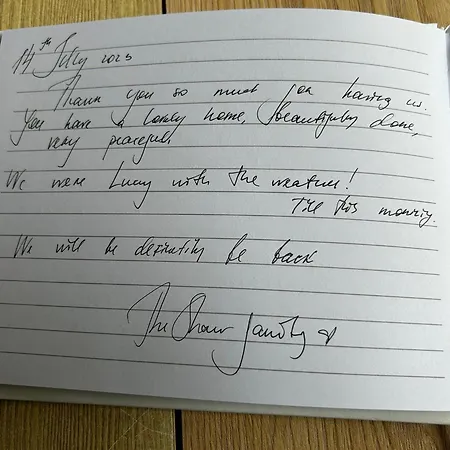 14th July 2023
Thank you so much for having us.
You have a lovely home, beautifully done,
very peaceful.
We were lucky with the weather!
Till this morning.
We will be definitely be back
The family